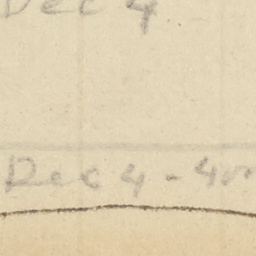 Dec 4
Dec 4 - 4